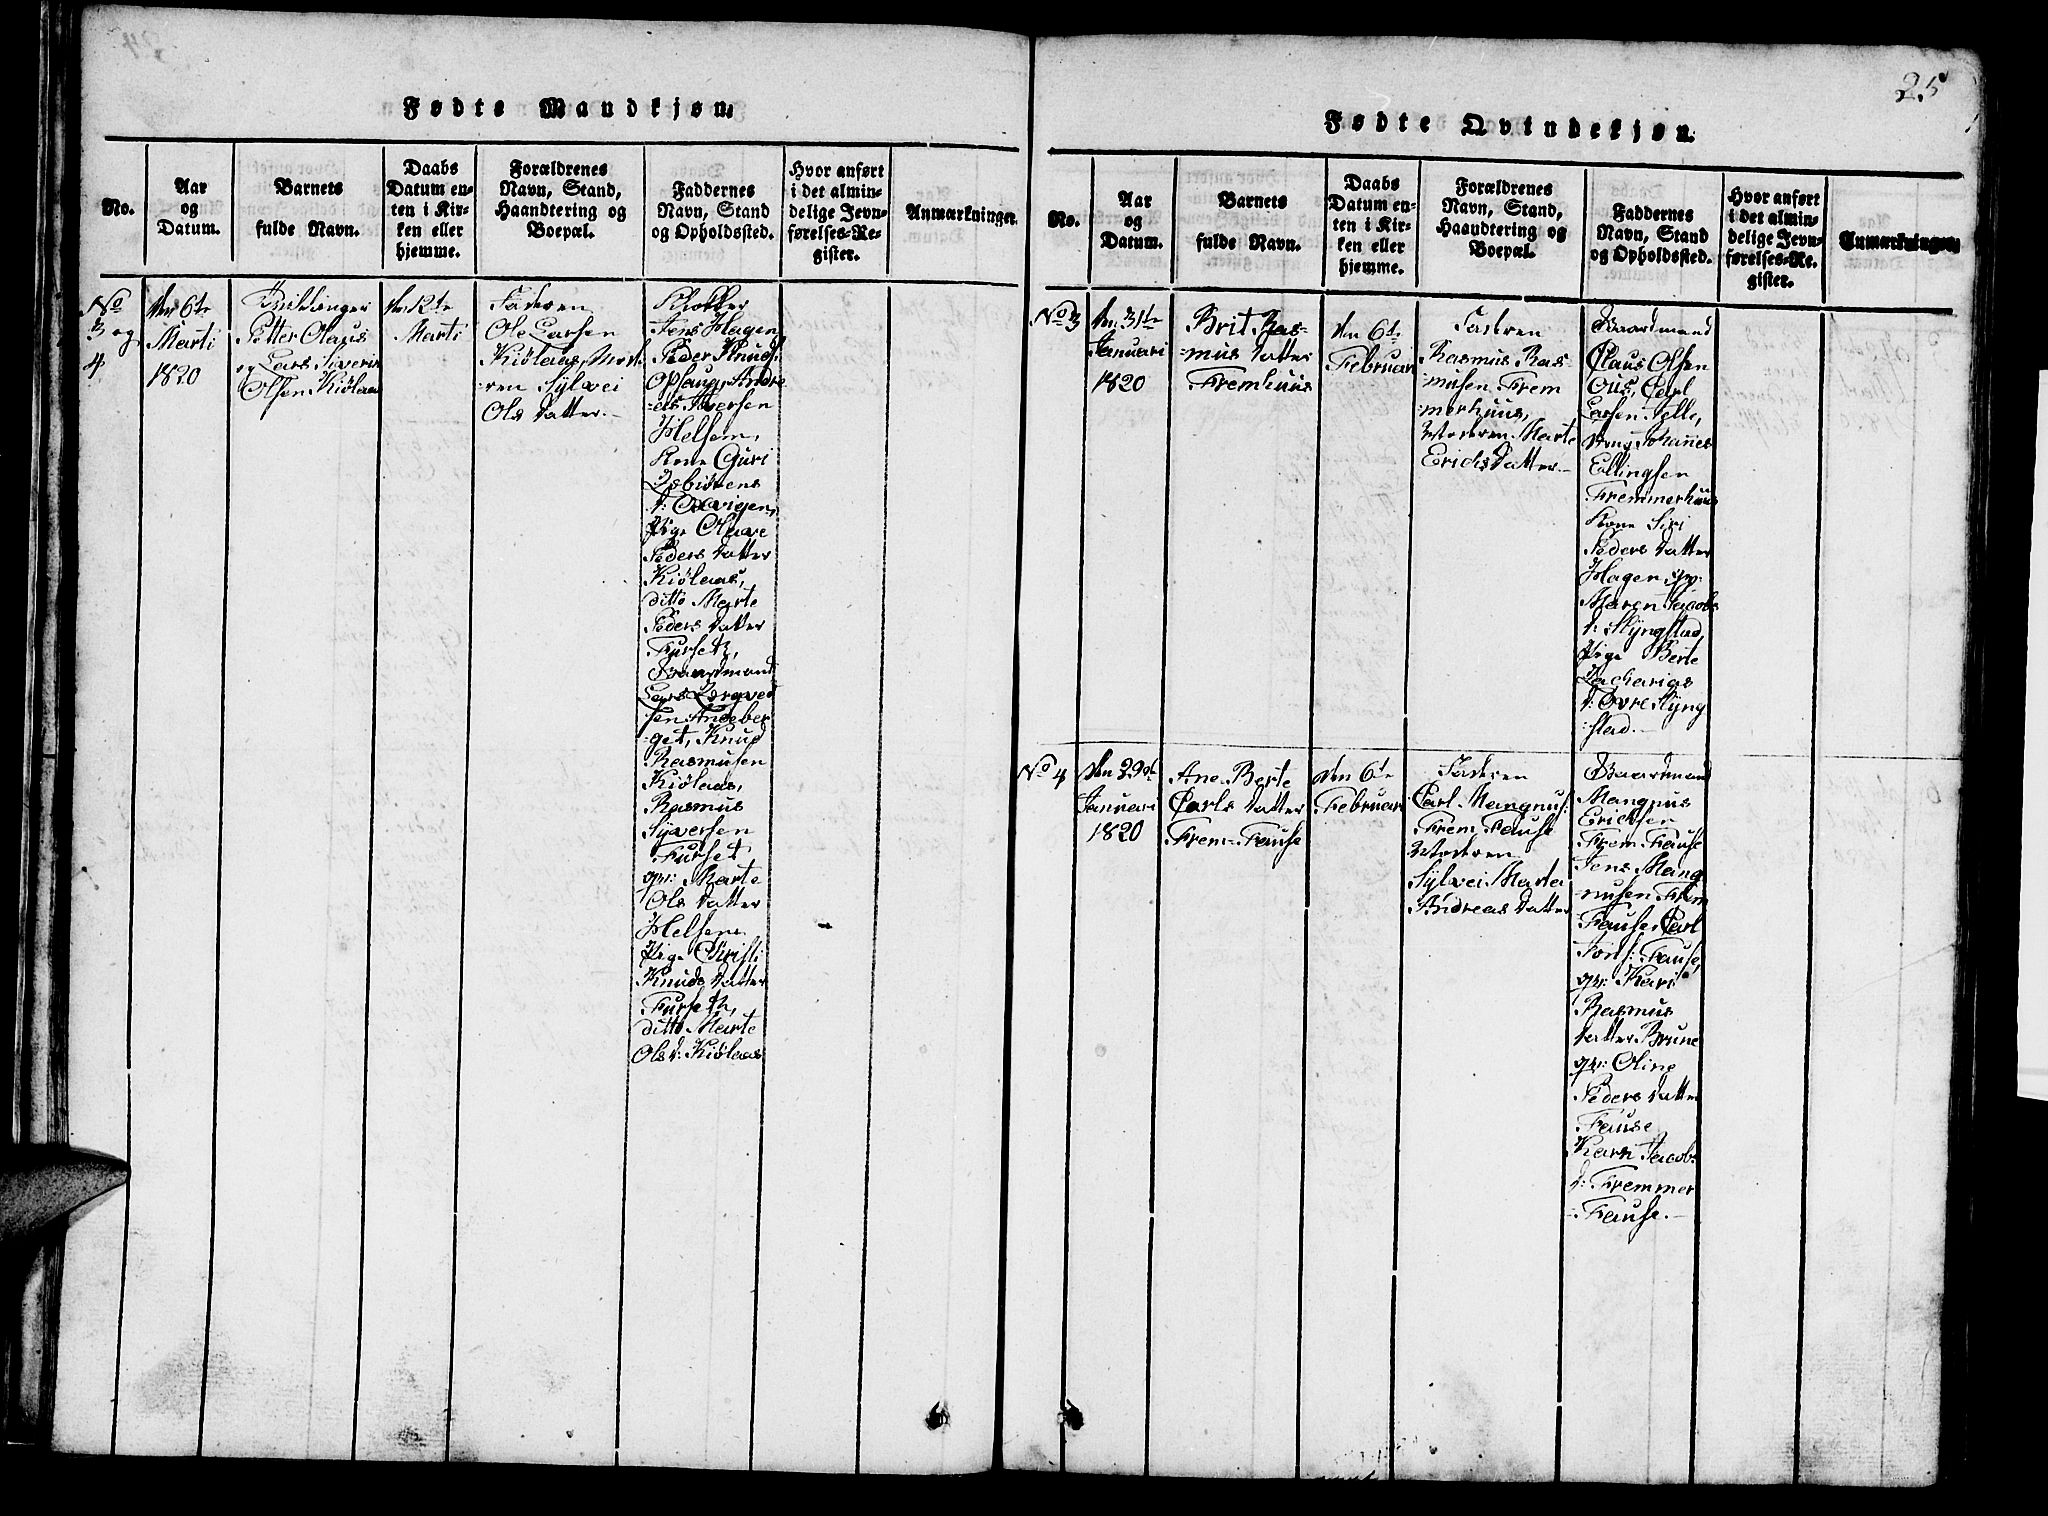 Fødte Mandkjøn.
No.
Aar
og
Datum.
Barnets
fulde Navn.
Daabs
Datum en-
ten i Kir-
ken eller
hjemme.
Forældrenes
Navn, Stand,
Haandtering og
Boepæl.
Faddernes
Navn, Stand
og Opholdssted.
Hvor anført
i det almin-
delige Jevn-
førelses-Re-
gister.
Anmærkninger.
No
3 og
4
den 6te
Marti
1820
Petter Olaus
og Lars Siverin
Olsen Kiölaas
den 12te
Marti
Faderen
Ole Larsen
Kiölaas, Mode
ren Sylvei
Ols datter.
Klokker
Jens Hagen
Peder Knuds:
Opsaug, Andre
-as Siversen
Helsem,
Kone Guri
Esbiörens
d: Oxvigen,
Pige Olave
Peders datter
Kiölaas,
ditto Marte
Peders datter
Furseth,
Baardmand
Lars
sen Andeber
get, Knud
Rasmusen
Kiölaas,
Rasmus
Syversen
Furset
gm: Marte
Ols datter
Helsem
Pige Christi
Knuds datter
Furseth,
ditto Marte
Ols d: Kiölaas
25
Fødte Qvindekjøn.
No.
Aar
og
Datum.
Barnets
fulde Navn.
Daabs
Datum en-
ten i Kir-
ken eller
hjemme.
Forældrenes
Navn, Stand,
Haandtering og
Boepæl.
Faddernes
Navn, Stand
og Opholdssted.
Hvor anført
i det almin-
delige Jevn-
førelses-Re-
gister.
Anmærkninger.
No 3
den 31te
Januari
1820
Brit Ras-
mus datter
Fremhuus
den 6te
Februar
Faderen
Rasmus Ras-
musen Frem
-merhuus,
Moderen Marte
Erichs datter.
Baardmand
Claus Olsen
Ous, Carl
Larsen
dreng Johannes
Ellingsen
Fremmerhuus
Kone Siri
Peders datter
Hagen, gm:
Maren Jacobs
d: Slyngstad,
Pige Berte
Zacharias
d: Øvre Slyng
-stad.
No 4
den 29de
Januari
1820
Ane Berte
Carls datter
Frem-Fause
den 6te
Februar
Faderen
Carl Mangnus:
Frem Fause
Moderen
Sylvei Marta
Andreas datter
Baardmand
Mangnus
Ericksen
Frem Fause
Jens Mang
nusen Frem
Fause, Carl
Jons: Fause,
gm: Kari
Rasmus
datter Brune
gm: Oline
Peders datter
Fause,
Karn Jacobs
d: Fremmer
-Fause.